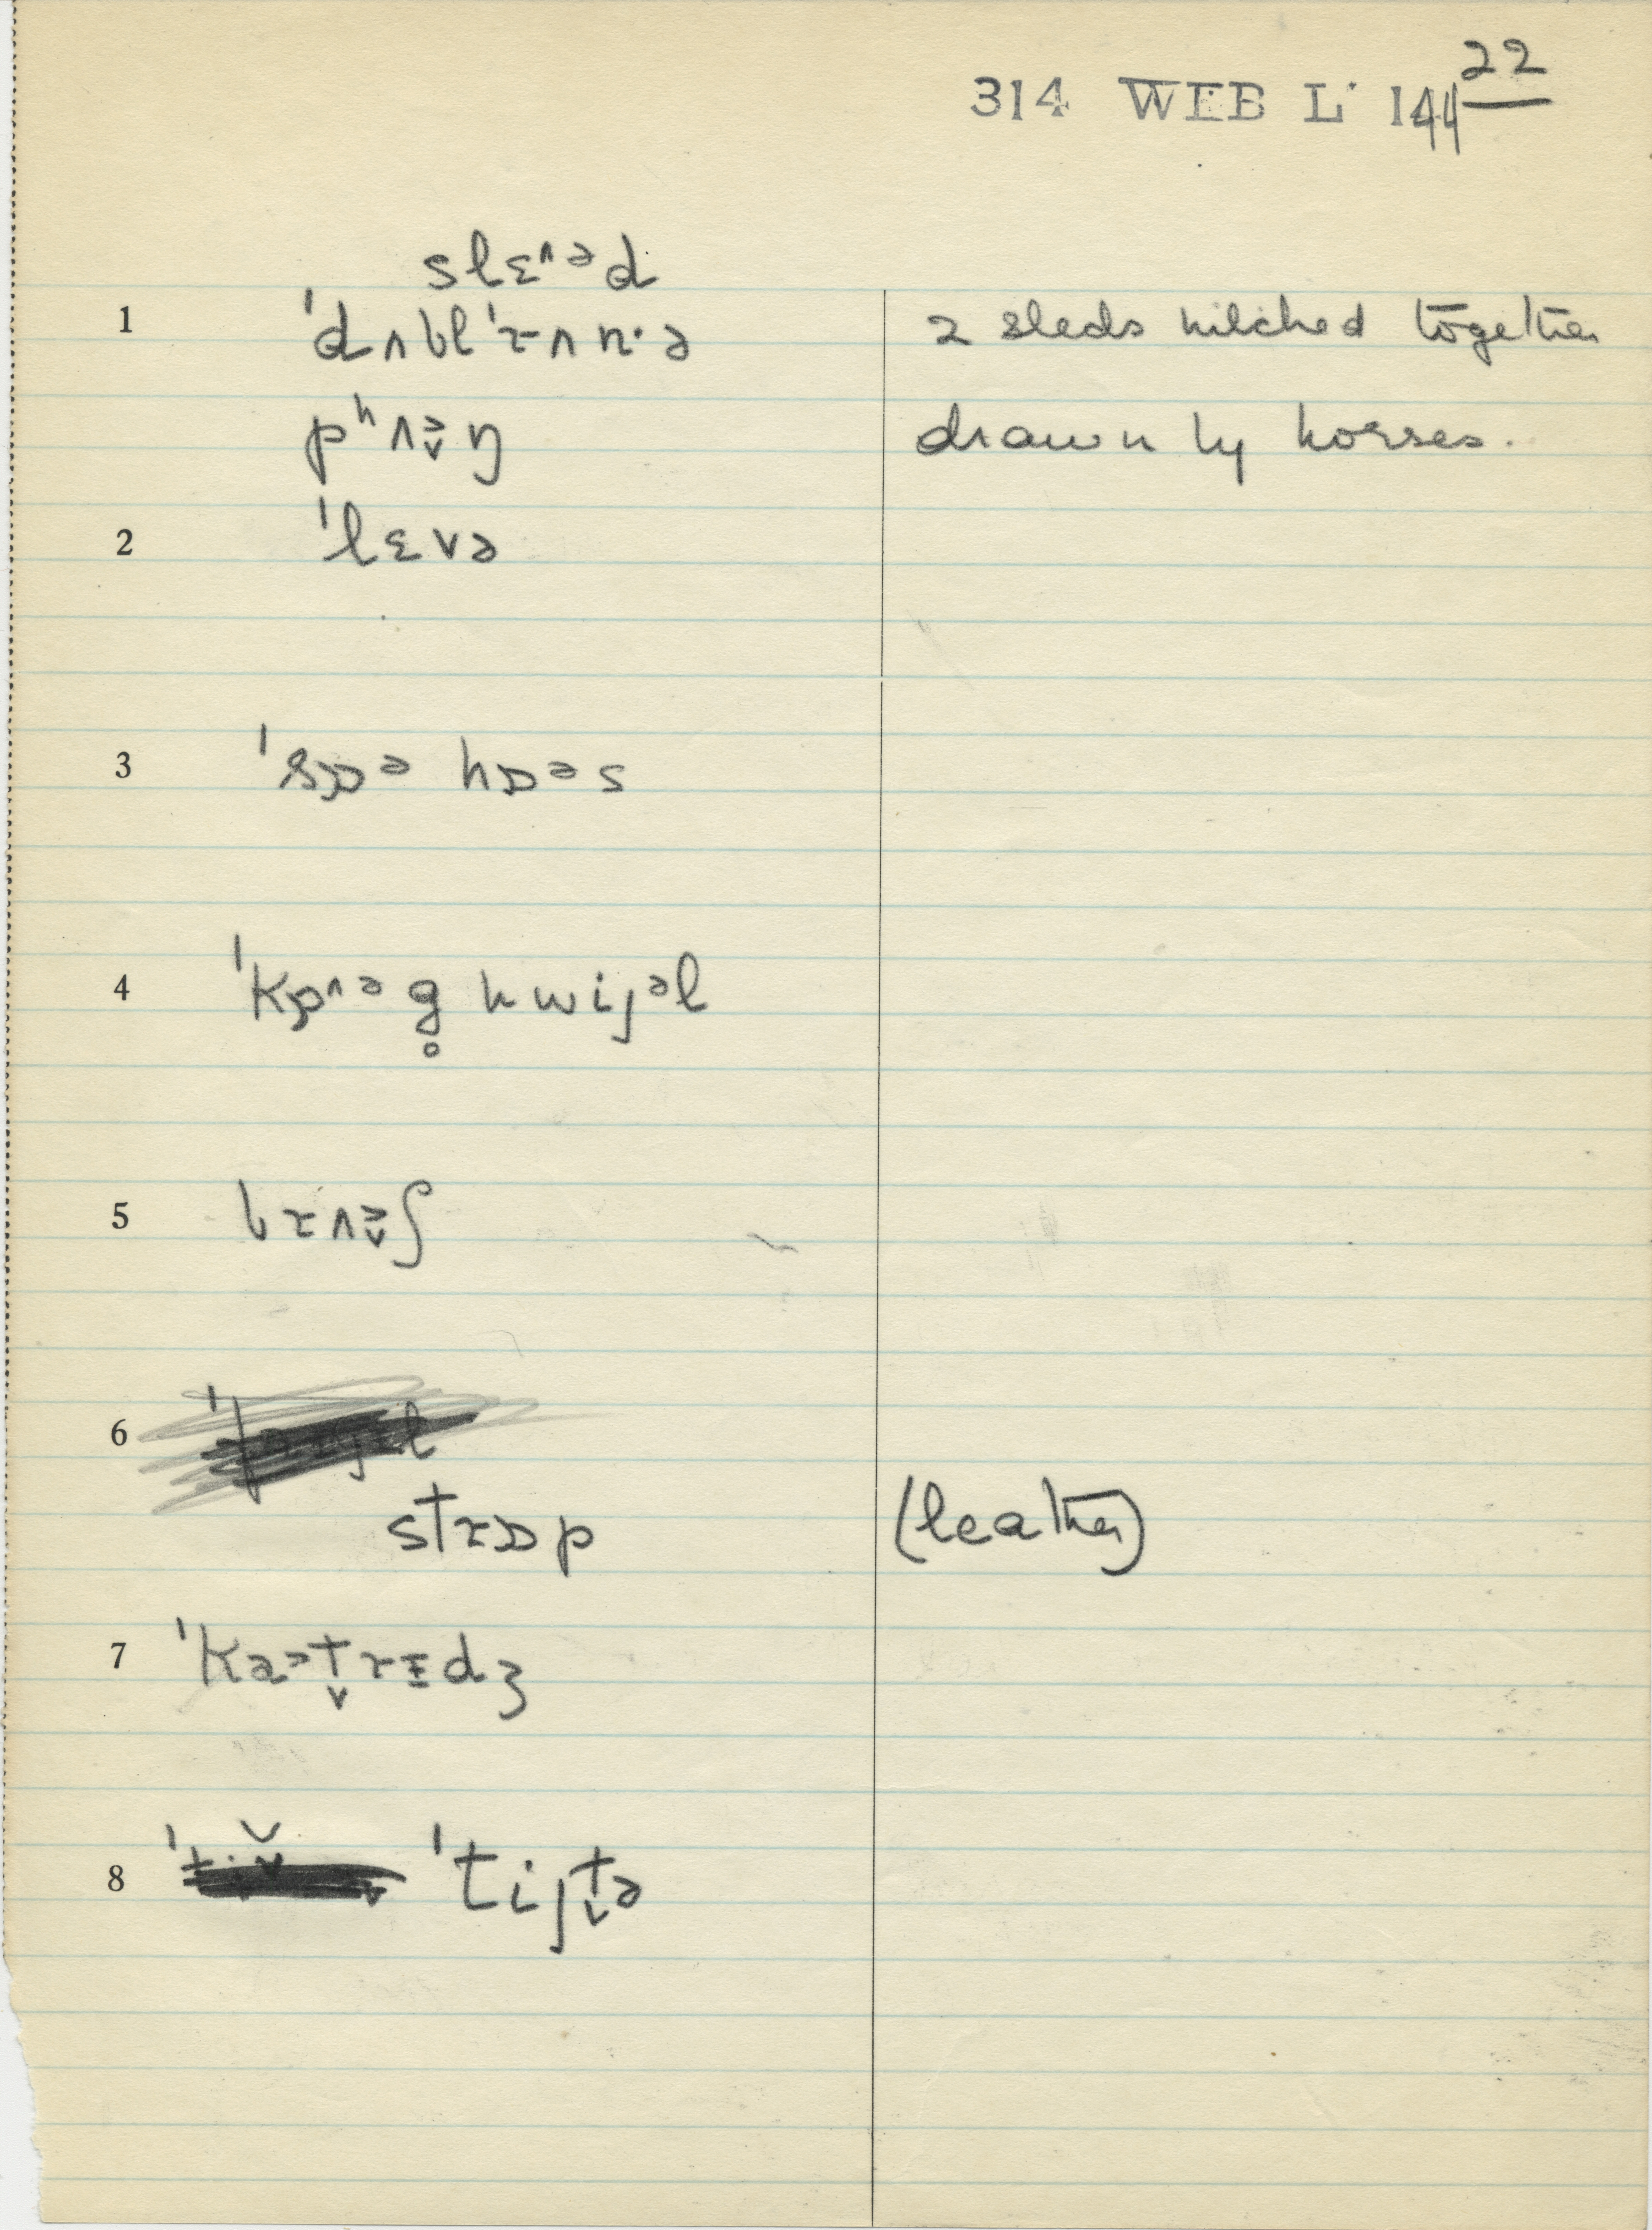 314 WEB L· 144 22
slɛ^ᵊd
1 ˈdʌbl ˈrʌn·ə 2 sleds hitched together
pʰʌə̬ŋ drawn by horses.
2 ˈlɛvə
3 ˈsɒᵊ hɒᵊs
4 ˈkɒ^ᵊg̥ hwijᵊl
5 brʌə̬ʃ
6
strɒp (leather)
7 ˈkaᵊt̬rɪdʒ
8 ˈtijt̬ə